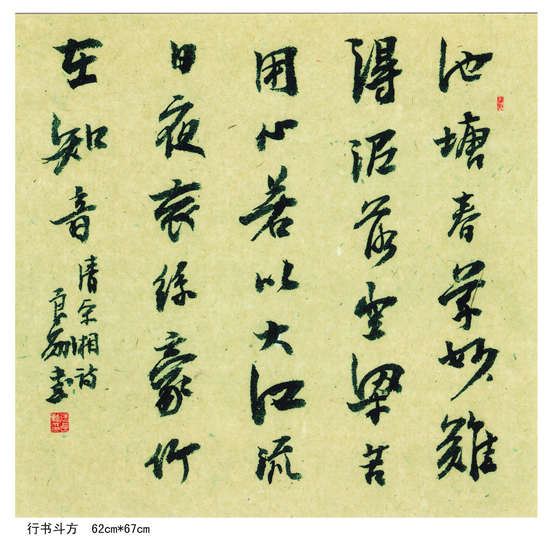 池塘春草妙難
得泥落空梁苦
用心若比大江流
日夜哀絲豪竹
在知音
清宋湘詩
良 書
行书斗方 62cm*67cm